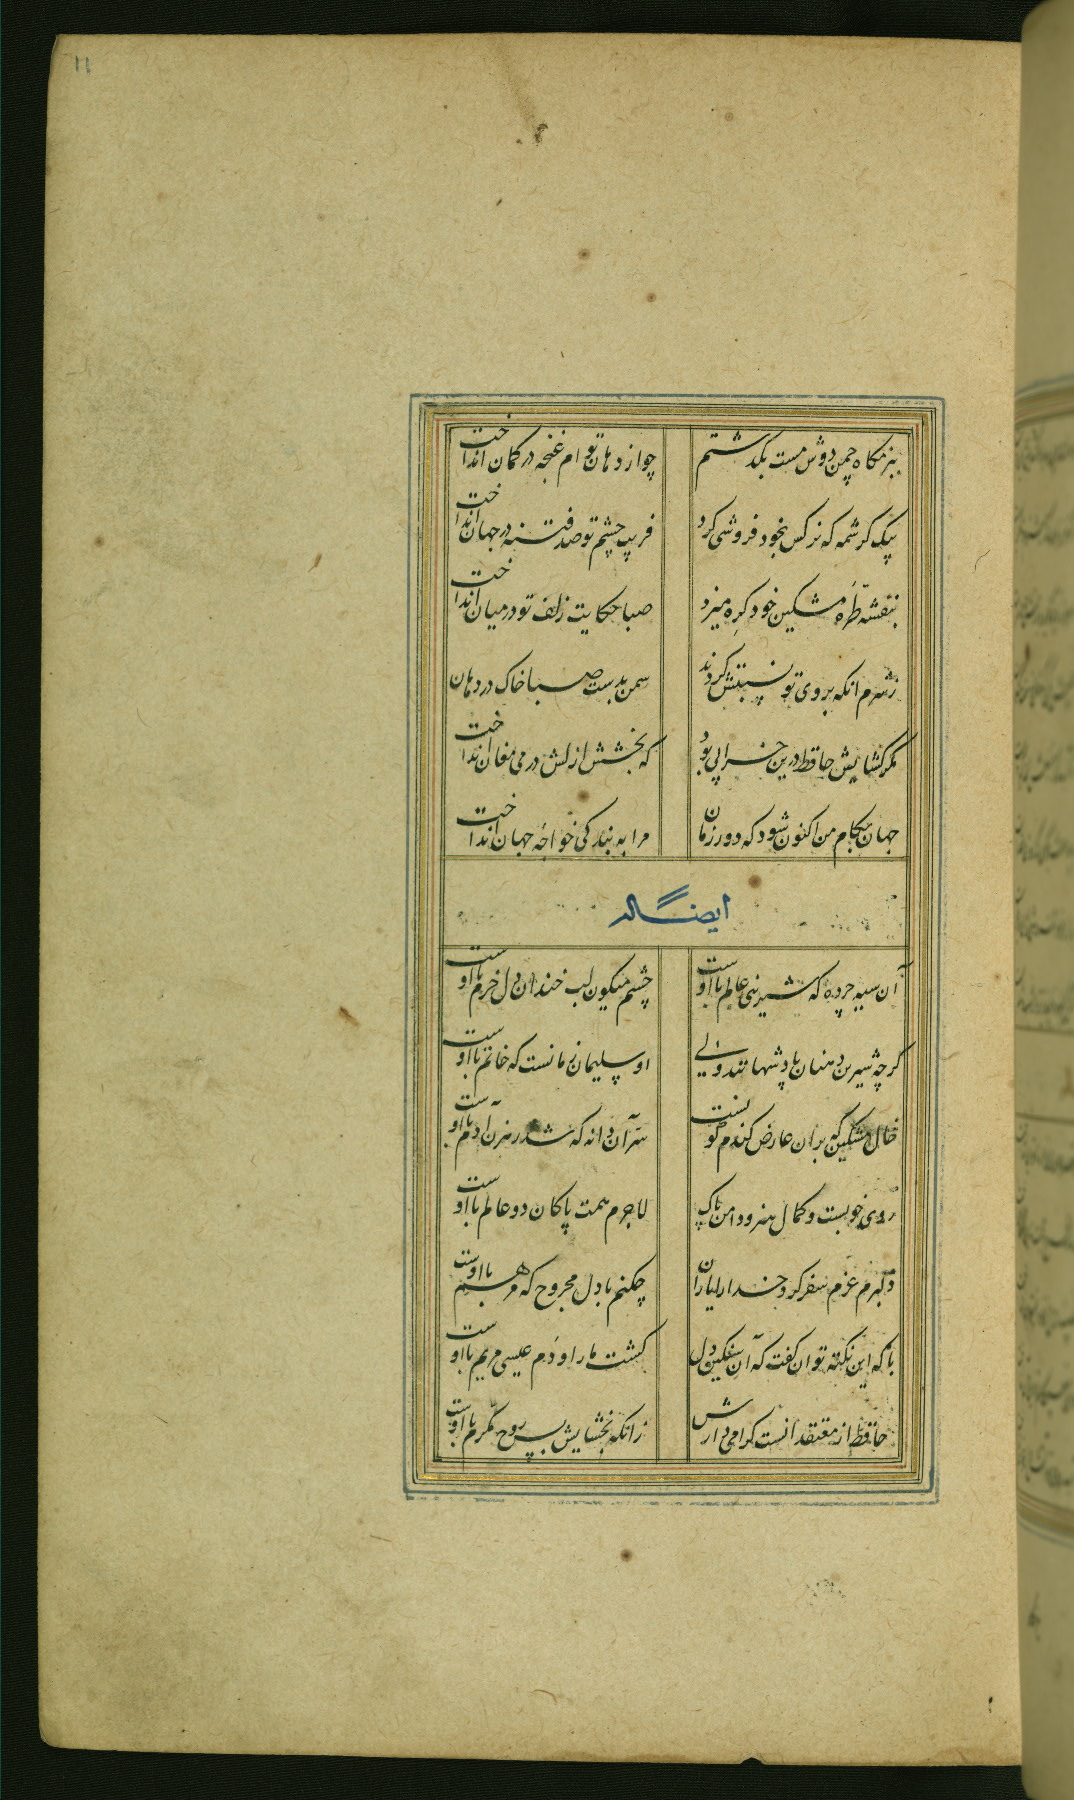 ۱۱
ببزمکاه چمن دوش مست بکذشتم چو از دهان توام غنچه در کمان انداخت
بیک کرشمه که نرکس بخود فروشی کرد فریب چشم تو صد فتنه در جهان انداخت
بنفشه طرّه مشکین خود کره میزد صبا حکایت زلف تو در میان انداخت
زشرم انکه بروی تو نسبتش کردند سمن بدست صبا خاک در دهان
مکر کشایش حافظ درین خرابی بود که بخشش ازلش در می مغان انداخت
جهان بکام من اکنون شود که دور زمان مرا به بندکی خواجه جهان انداخت
ایضا له
آن سیه چرده که شیرینی عالم با اوست چشم میکون لب خندان دل خرم با اوست
کرچه شیرین دهنان پادشهانند ولی او سلیمان زمانست که خاتم با اوست
خال مشکین که بران عارض کندم کونست سرّ آن دانه که شد رهزن آدم با اوست
روی خوبست و کمال هنر و دامن پاک لاجرم همت پاکان دو عالم با اوست
دلبرم عزم سفر کرد خدا را یاران چکنم با دل مجروح که مرهم با اوست
با که این نکته توان کفت که آن سنکین دل کشت ما را و دم عیسی مریم با اوست
حافظ از معتقدانست کرامی دارش زانکه بخشایش بس روح مکرّم با اوست